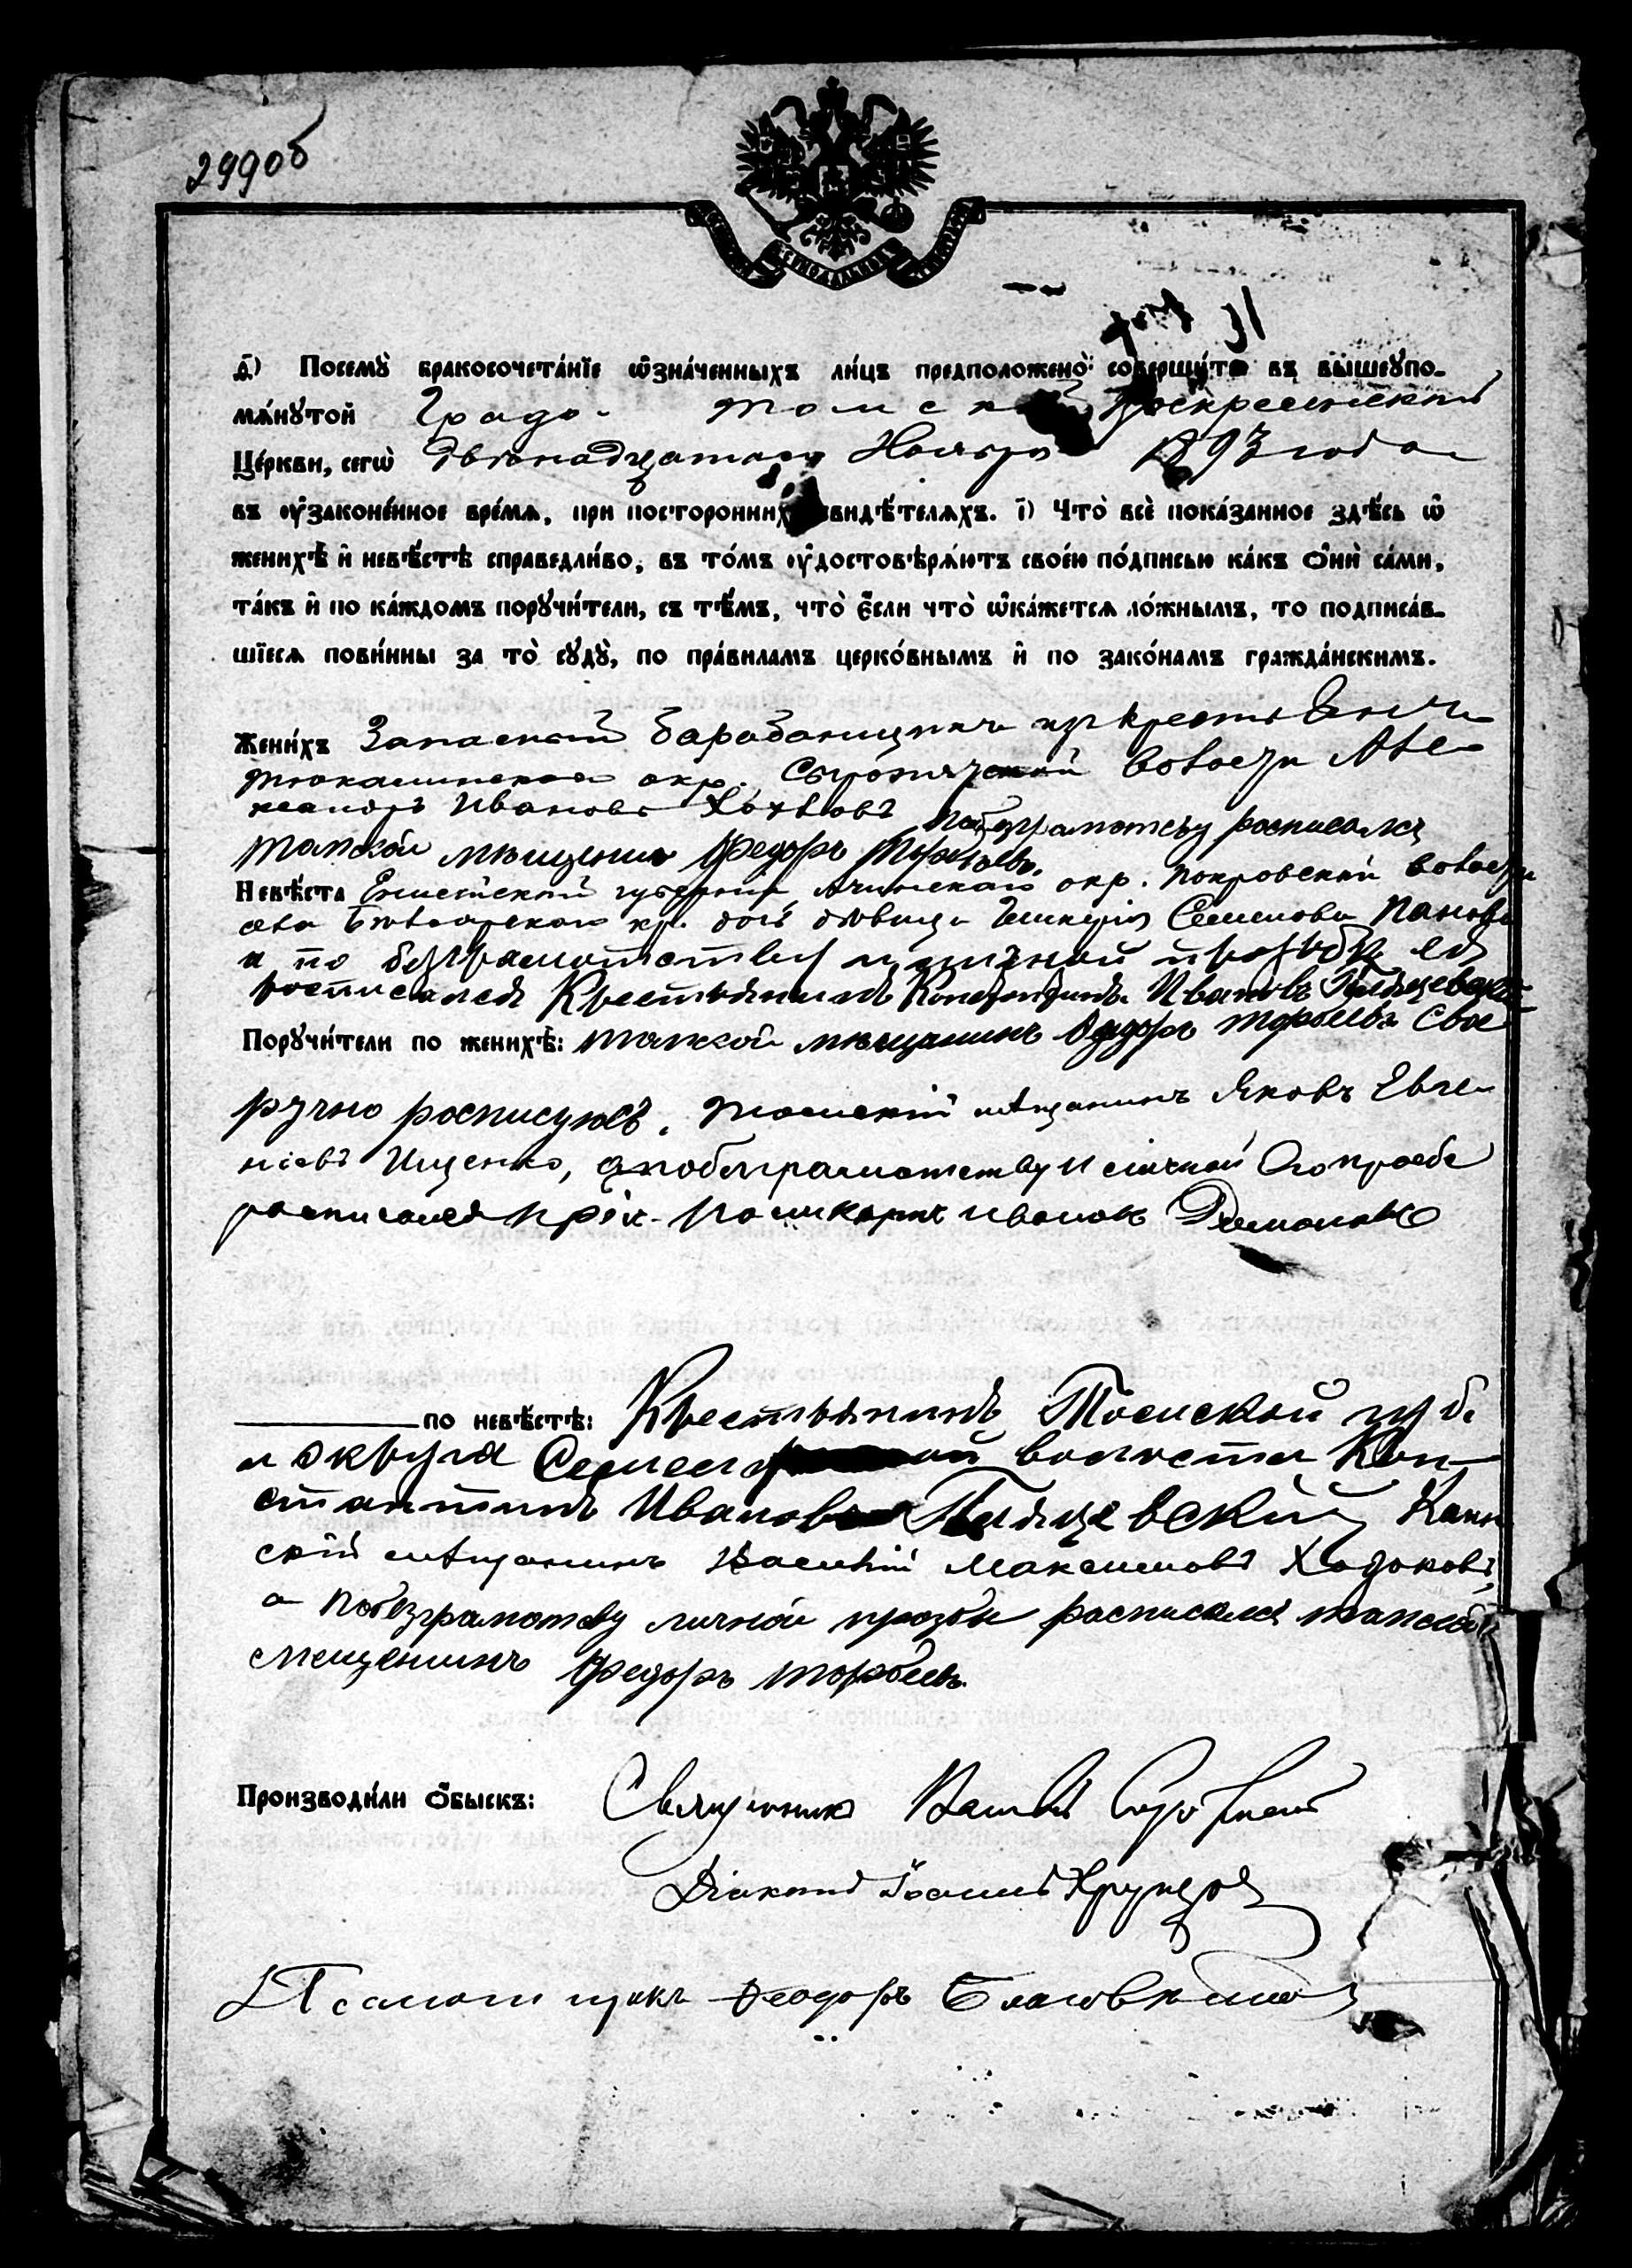 299об
СѴНОДАЛЬНЫѦ
д҃) Посемꙋ̀ бракосочета́нїе ѡ҆зна́ченныхъ ли́цъ предположено̀ соверши́ть въ вышеꙋпо-
мѧ́нꙋтой Градо- Томской Воскресенской
Це́ркви, сегѡ̀ Двѣнадцатаго Ноября 1893 года
въ ᲂу҆законе́нное вре́мѧ, при постороннихъ свидѣ́телѧхъ. і҃) Что̀ всѐ пока́занное здѣ́сь ѡ҆
женихѣ̀ и҆ невѣ́стѣ справедли́во, въ то́мъ ᲂу҆достовѣрѧ́ютъ свое́ю по́дписью ка́къ Ѻ҆нѝ са́ми,
та́къ и҆ по ка́ждомъ порꙋчи́тели, съ тѣ́мъ, что̀ є҆́сли что̀ ѡ҆ка́жется ло́жнымъ, то подписа́в-
шїеся пови́нны за то̀ сꙋдꙋ̀, по пра́виламъ церко́внымъ и҆ по зако́намъ гражда́нскимъ.
Жени́хъ Запасной барабанщикъ изъ крестьянъ
Тюкалинскаго окр. волости Але-
ксандръ Ивановъ Хохловъ побезграмотству росписалса
томской мещенинъ Федоръ Торбѣевъ.
Невѣ́ста Енисейской губерніи Ачинскаго окр. Покровской волости
села кр. дочь дѣвица Семенова Панова
а по безграмотству и личной прозьбѣ ея
росписался Крестьянинъ Константинъ Ивановъ
Порꙋчи́тели по женихѣ̀: томской мѣщанинъ Федоръ Торбеевъ Свое
ручно росписуюсь. Томскій мѣщанинъ Яковъ Евге-
ніевъ Ищенко, а побезграмотству и личной Его прозбе
росписался Иванов
по невѣ́стѣ: Крестьянинъ Томской губ.
и округа волости Кон-
стантинъ Ивановъ Каин
скій мѣщанинъ Василій Максимовъ Ходоковъ,
а побезграмотству личной прозби росписалса томской
мещенинъ Федоръ Торбеевъ.
Производи́ли Ѻ҆́быскъ: Священникъ Василій
Діаконъ Іоаннъ
Псаломщикъ Ѳеодоръ